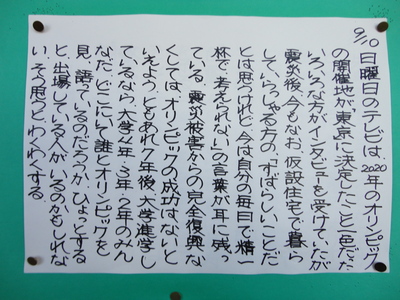 9/10 日曜日のテレビは、2020年のオリンピック
の開催地が「東京」に決定したこと一色だった
いろいろな方がインタビューを受けていたが
震災後、今もなお、仮設住宅で暮ら
していらっしゃる方の、「すばらしいことだ
とは思うけれど、今は自分の毎日で精一
杯で、考えられない」の言葉が耳に残っ
ている。震災被害からの完全復興な
くしては、オリンピックの成功はないと
いえよう。ともあれ、7年後、大学進学し
ているなら、大学4年・3年・2年のみん
なだ。どこにいて、誰とオリンピックを
見、語っているのだろうか。ひょっとする
と、出場している人がいるのかもしれな
い。そう思うと、わくわくする。